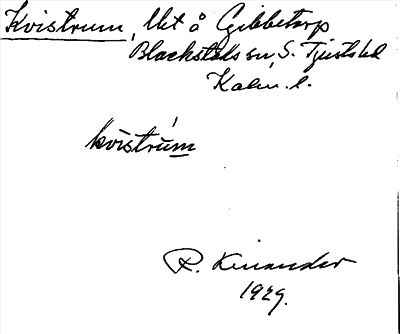 Kvistrum, lht å Gibbetorp
Blackstads sn, S. Tjusts hd
Kalm. l.
kvistrúm
R. Kinander
1929.